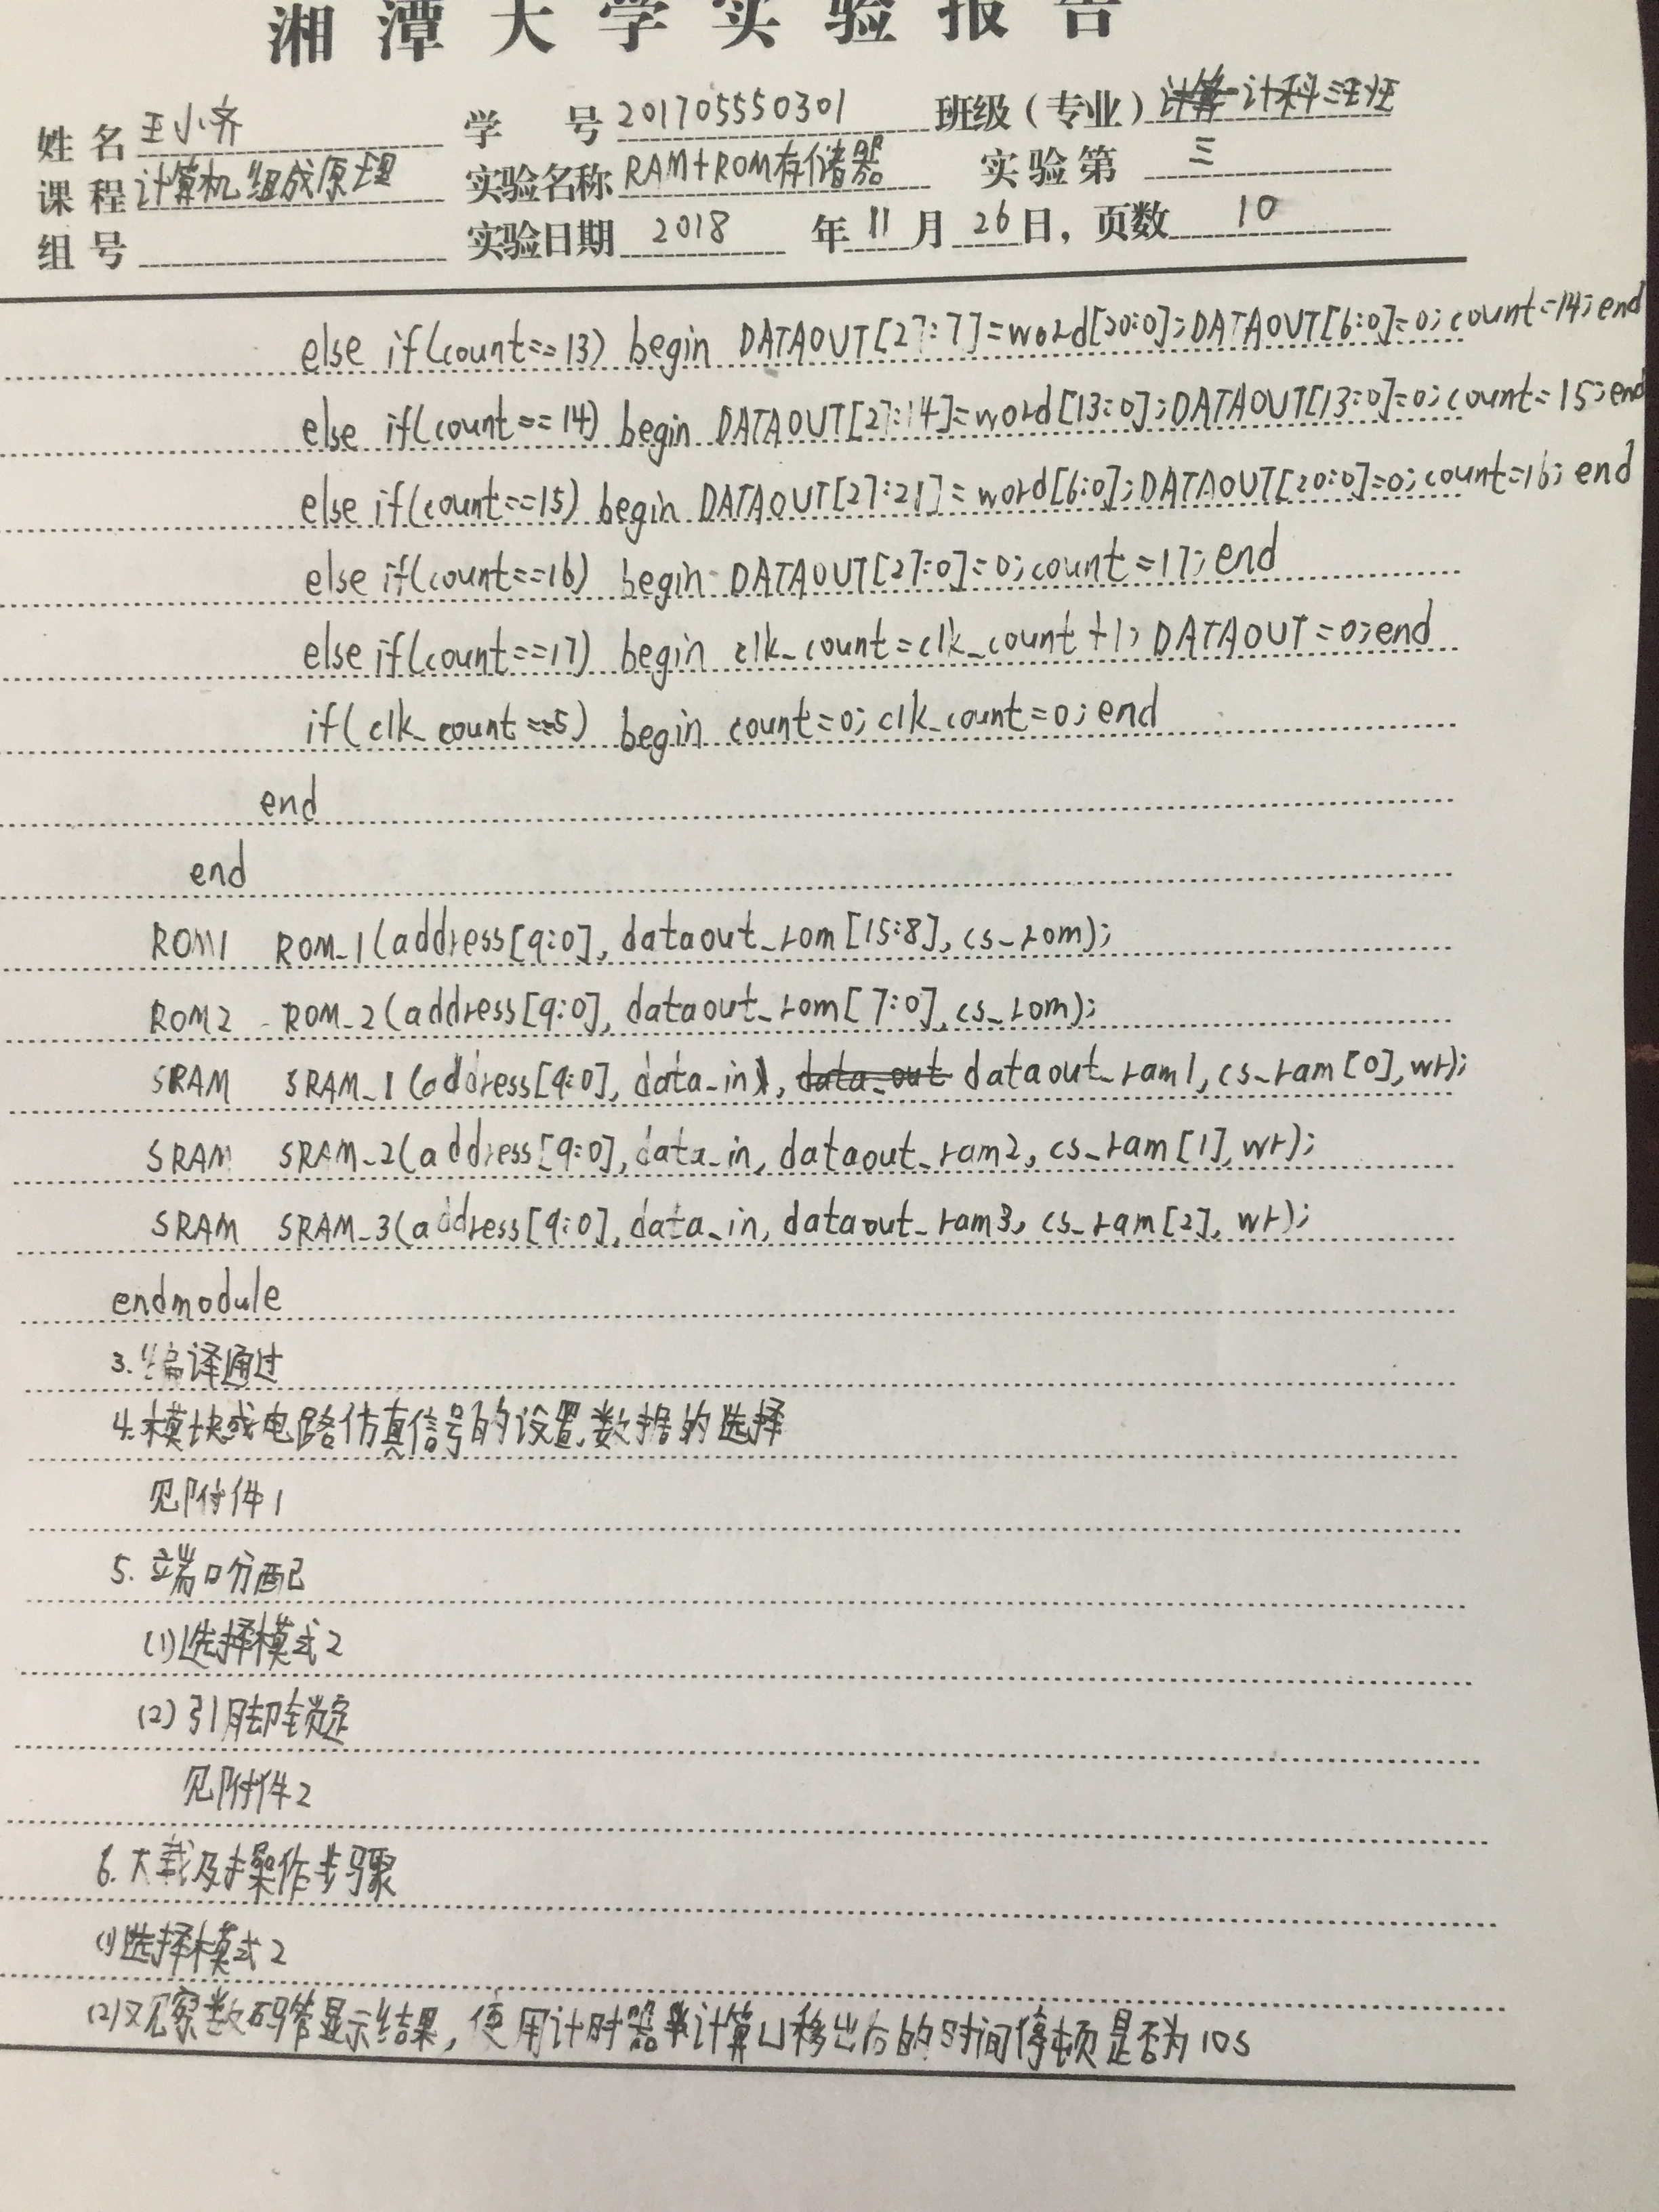 湘潭大学实验报告
姓名 王小齐 学号 201705550301 班级（专业） 计科三班
课程 计算机组成原理 实验名称 RAM+ROM存储器 实验第 三
组号 实验日期 2018 年 11 月 26 日，页数 10
else if(count==13) begin DATAOUT[27:7]=word[20:0];DATAOUT[6:0]=0;count=14;end
else if(count==14) begin DATAOUT[27:14]=word[13:0];DATAOUT[13:0]=0;count=15;end
else if(count==15) begin DATAOUT[27:21]=word[6:0];DATAOUT[20:0]=0;count=16;end
else if(count==16) begin DATAOUT[27:0]=0;count=17;end
else if(count==17) begin clk_count=clk_count+1;DATAOUT=0;end
if(clk_count==5) begin count=0;clk_count=0;end
end
end
ROM1 ROM_1(address[9:0],dataout_rom[15:8],cs_rom);
ROM2 ROM_2(address[9:0],dataout_rom[7:0],cs_rom);
SRAM SRAM_1(address[9:0],data_in,dataout_ram1,cs_ram[0],wr);
SRAM SRAM_2(address[9:0],data_in,dataout_ram2,cs_ram[1],wr);
SRAM SRAM_3(address[9:0],data_in,dataout_ram3,cs_ram[2],wr);
endmodule
3.编译通过
4.模块或电路仿真信号的设置,数据的选择
见附件1
5.端口分配
(1)选择模式2
(2)引脚锁定
见附件2
6.下载及操作步骤
(1)选择模式2
(2)观察数码管显示结果，使用计时器计算U移出后的时间停顿是否为10s